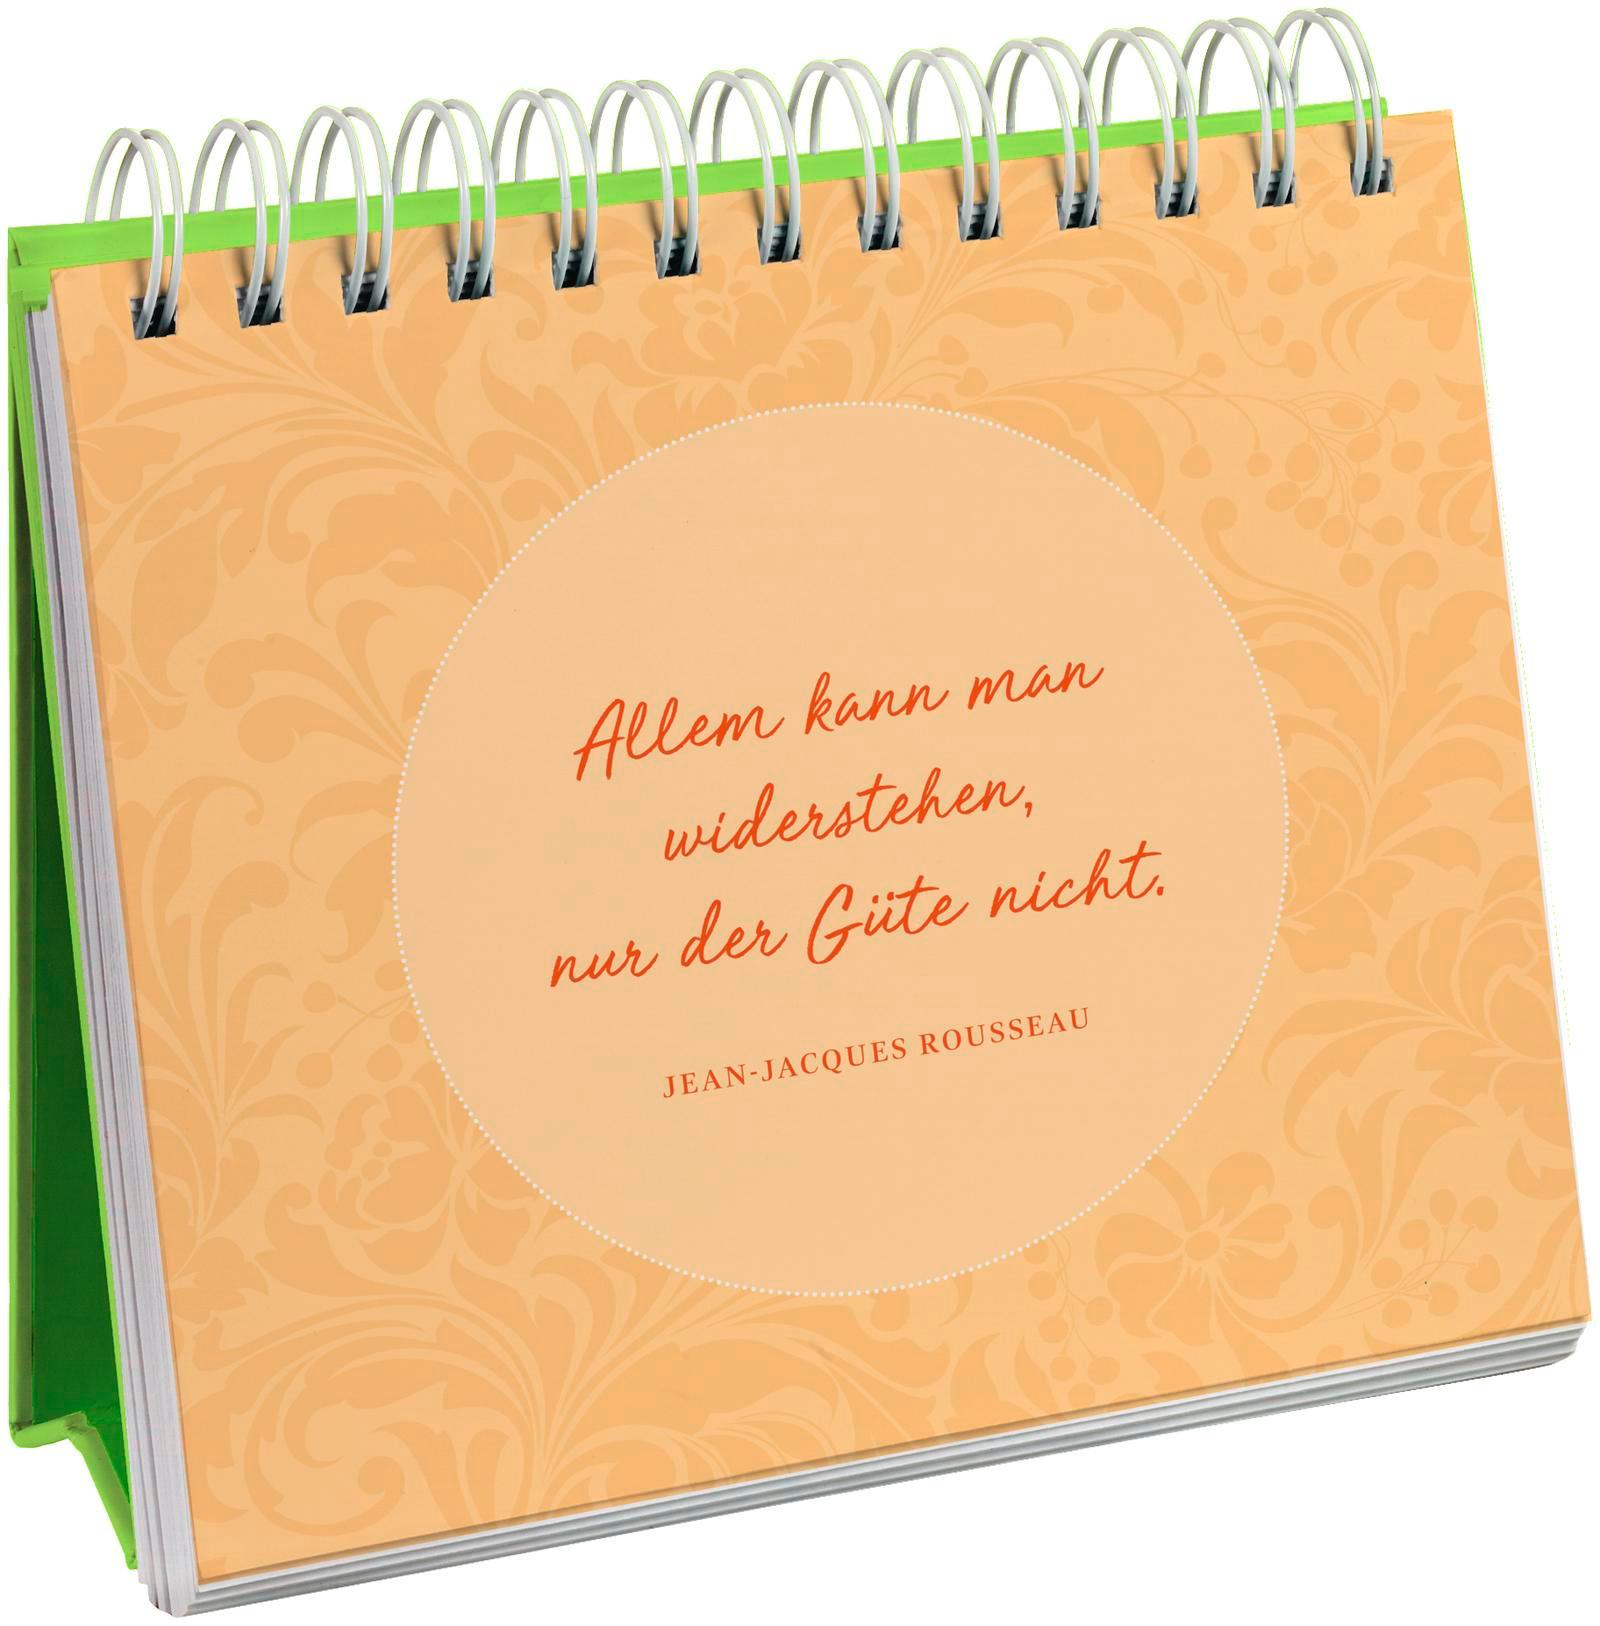 Allem kann man
widerstehen,
nur der Güte nicht.
JEAN-JACQUES ROUSSEAU